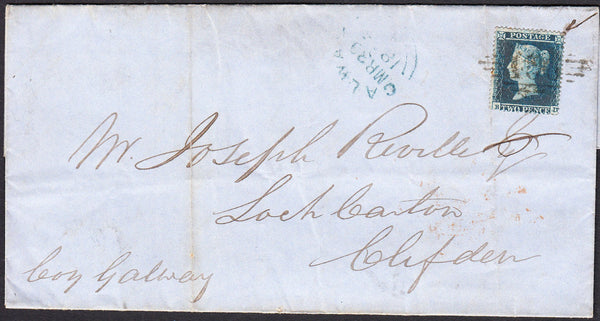 POSTAGE
TWO PENCE
Mr. Joseph Reville
Loch Carton
Clifden
Coy Galway